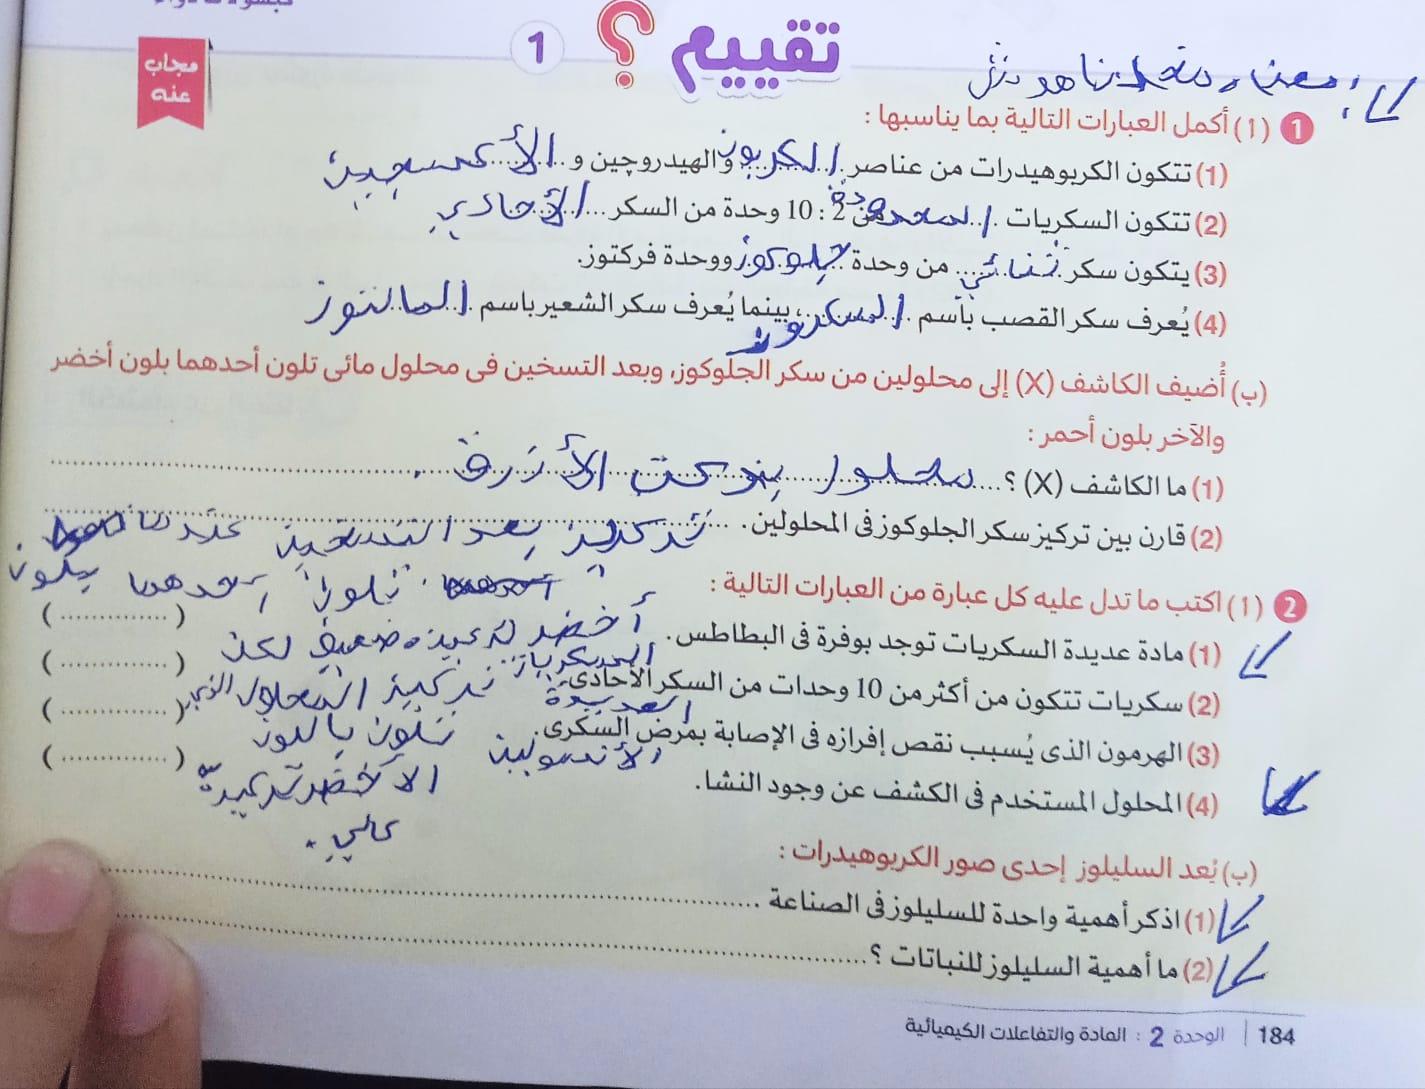 تقييم ؟ 1
مجاب عنه
1 (1) أكمل العبارات التالية بما يناسبها :
(1) تتكون الكربوهيدرات من عناصر الكربون والهيدروچين و الأكسجين
(2) تتكون السكريات المحدودة من 2 : 10 وحدة من السكر الأحادي
(3) يتكون سكر ثنائي من وحدة جلوكوز ووحدة فركتوز.
(4) يُعرف سكر القصب بأسم السكروز، بينما يُعرف سكر الشعير باسم المالتوز
(ب) أُضيف الكاشف (X) إلى محلولين من سكر الجلوكوز، وبعد التسخين فى محلول مائى تلون أحدهما بلون أخضر
والآخر بلون أحمر :
(1) ما الكاشف (X) ؟ محلول بندكت الأزرق.
(2) قارن بين تركيز سكر الجلوكوز فى المحلولين. تركيز بعد التسخين عندما
تلون أحدهما بلون
2 (1) اكتب ما تدل عليه كل عبارة من العبارات التالية :
أخضر تركيزه ضعيف لكن
(1) مادة عديدة السكريات توجد بوفرة فى البطاطس. (..............)
تركيز المحلول الذي
(2) سكريات تتكون من أكثر من 10 وحدات من السكر الأحادى. السكريات العديدة (..............)
تتلون باللون
(3) الهرمون الذى يُسبب نقص إفرازه فى الإصابة بمرض السكرى. الأنسولين (..............)
الأخضر تركيزة
(4) المحلول المستخدم فى الكشف عن وجود النشا. (..............)
عالي.
(ب) يُعد السليلوز إحدى صور الكربوهيدرات :
(1) اذكر أهمية واحدة للسليلوز فى الصناعة
(2) ما أهمية السليلوز للنباتات ؟
184 | الوحدة 2 : المادة والتفاعلات الكيميائية